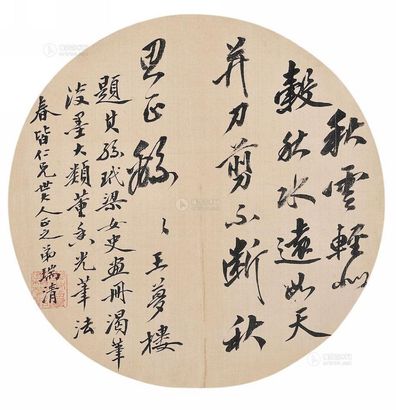 秋雲輕似
縠秋水遠如天
并刀剪不断秋
思正緜〻王夢樓
題其孫玳梁女史画冊渴筆
淡墨大類董香光筆法
春皆仁兄世大人正之弟瑞清